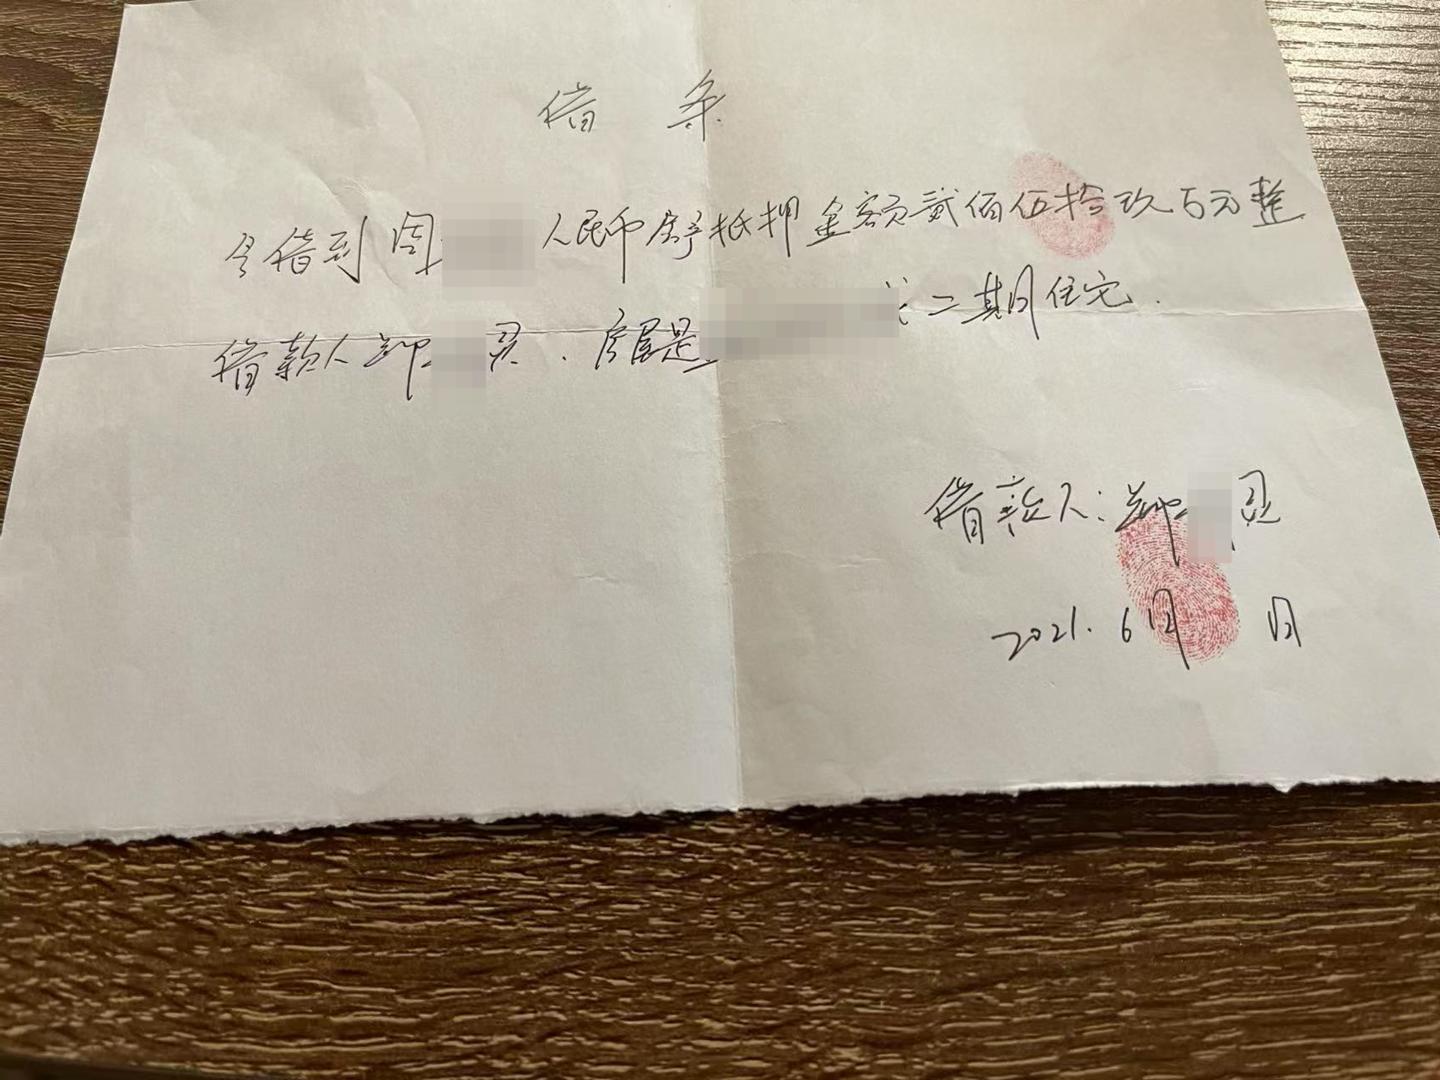 借条
今借到周 人民币房产抵押金额贰佰伍拾玖万元整
借款人郑 灵.房屋是 二期住宅.
借款人:郑 灵
2021.6月 日